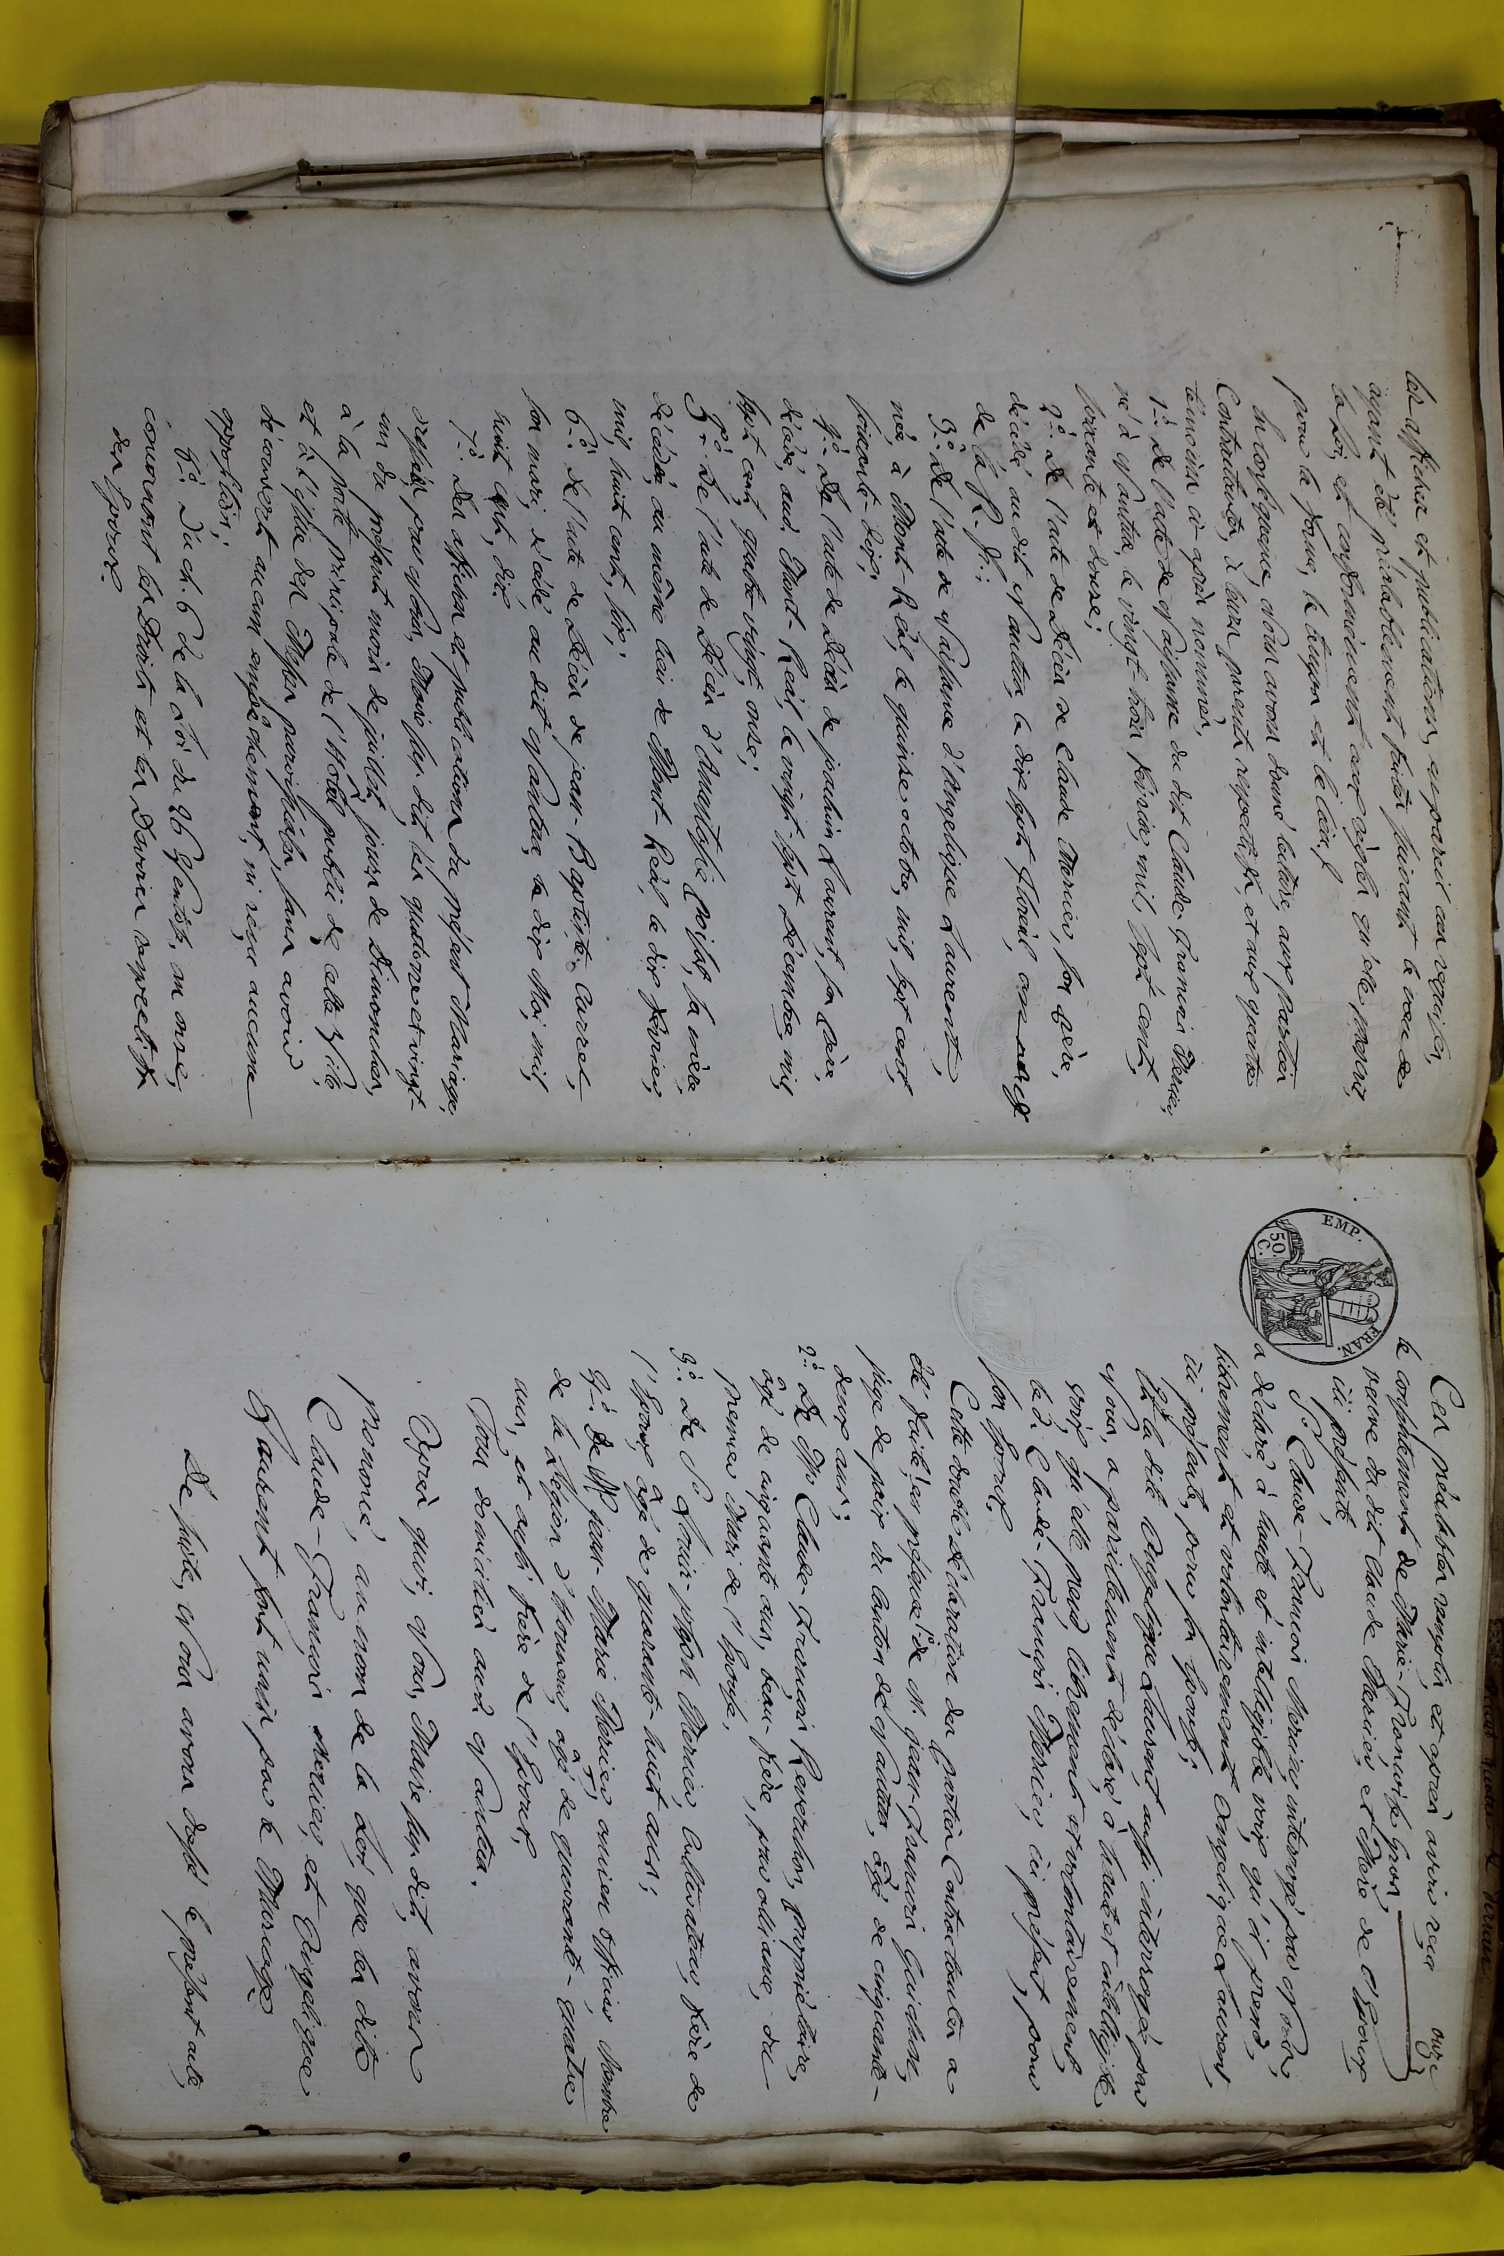 les affiches et publications, en pareil cas requises,
ayant été préalablement faites suivant le vœu de
la Loi, et conformément aux règles qu'elle prescrit,
pour la forme, le temps et le lieu,
En conséquence, Nous avons donné lecture, aux parties
Contractantes, à leurs parents respectifs, et aux quatre
témoins ci-après nommés,
1º. de l'acte de Naissance du dit Claude-François Mercier,
né à Nantua, le vingt-trois février, mil, sept cent,
soixante et douze;
2º. De l'acte de Décès de Claude Mercier, son Père,
décédé au dit Nantua, le dix sept floréal, an
de la R. f.;
3º. De l'acte de Naissance d'Angelique Laurent,
née, à Mont-Réal, le quinze octobre, mil, sept cent,
soixante-six;
4º. De l'acte de Décès de Joachim Laurent, son Père,
décédé, aud. Mont-Réal, le vingt sept Décembre, mil
sept cent, quatre-vingt, onze;
5º. De l'acte de Décès d'Anastasie sa mère,
décédée, au même lieu de Mont-Réal, le dix février,
mil, huit cent, six;
6º. de l'acte de Décès de jean-Baptiste Carrel,
son mari, décédé au dit Nantua, le dix Mai, mil,
huit cent, dix
7º. Des affiches et publications du présent Mariage,
par Nous, Maire sus-dit, les quatorze et vingt-
un du présent mois de juillet, jours de Dimanches,
à la porte principale de l'Hôtel public de cette Ville,
et à l'issue des Messes paroissiales, sans avoir
découvert aucun empêchement, ni reçu aucune
opposition;
8º. Du ch. 6 de la Loi du 26 Ventôse, an onze,
concernant les Droits et les Devoirs respectifs
des Epoux.
onze
Ces préalables remplis, et après avoir reçu
le consentement de Marie-Françoise
veuve du dit Claude Mercier, et Mère de l'Epoux,
ici présente,
Sr. Claude-François Mercier, interrogé par Nous,
a déclaré à haute et intelligible voix, qu'il prend,
librement et volontairement Angelique Laurent,
ici présente, pour son Epouse;
Et la dite Angelique Laurent aussi interrogée par
Nous, a pareillement déclaré, à haute et intelligible
voix, qu'elle prend, librement et volontairement,
le d. Claude-François Mercier, ici présent, pour
son Epoux.
Cette double déclaration des Parties Contractantes a
été faite, en présence 1º de M. jean-François Guichon,
juge de paix du Canton de Nantua, âgé de cinquante-
deux ans;
2º. De Mr. Claude-François Reverchon, propriétaire,
âgé de cinquante ans, beau-frère, par alliance, du
premier Mari de l'Epouse,
3º. De Sr. Louis-joseph Mercier, Cultivateur, frère de
l'Epoux, âgé de quarante-huit ans;
4º. De M. jean-Marie Mercier, ancien officier, Membre
de la Légion d'Honneur, âgé de quarante-quatre
ans, et aussi frère de l'Epoux,
Tous domiciliés aud. Nantua.
Après quoi, Nous, Maire sus-dit, avons
prononcé, au nom de la Loi, que les dits
Claude-François Mercier, et Angelique
Laurent sont unis par le Mariage.
De suite, Nous avons dressé le présent acte,
EMP. FRAN.
50.
C.